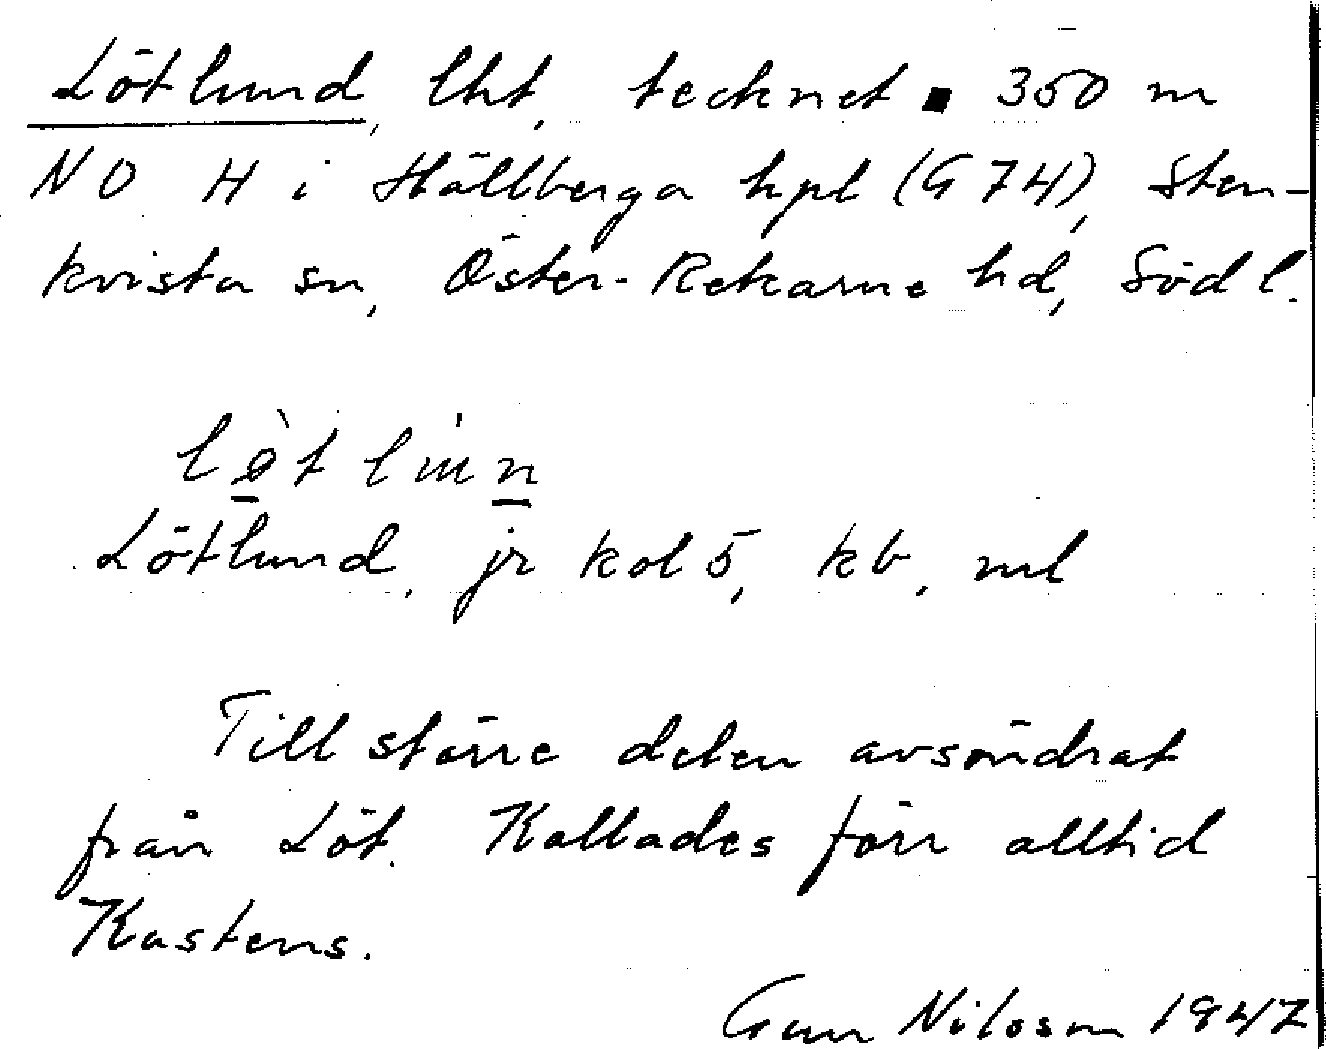 Lötlund, lht, tecknet ▪ 350 m
NO H i Hällberga hpl (G 74), Sten-
kvista sn, Öster-Rekarne hd, Södl.
lètlun
Lötlund, jr kol 5, kb, ml
Till större delen avsöndrat
från Löt. Kallades förr alltid
Kastens.
Gun Nilsson 1947